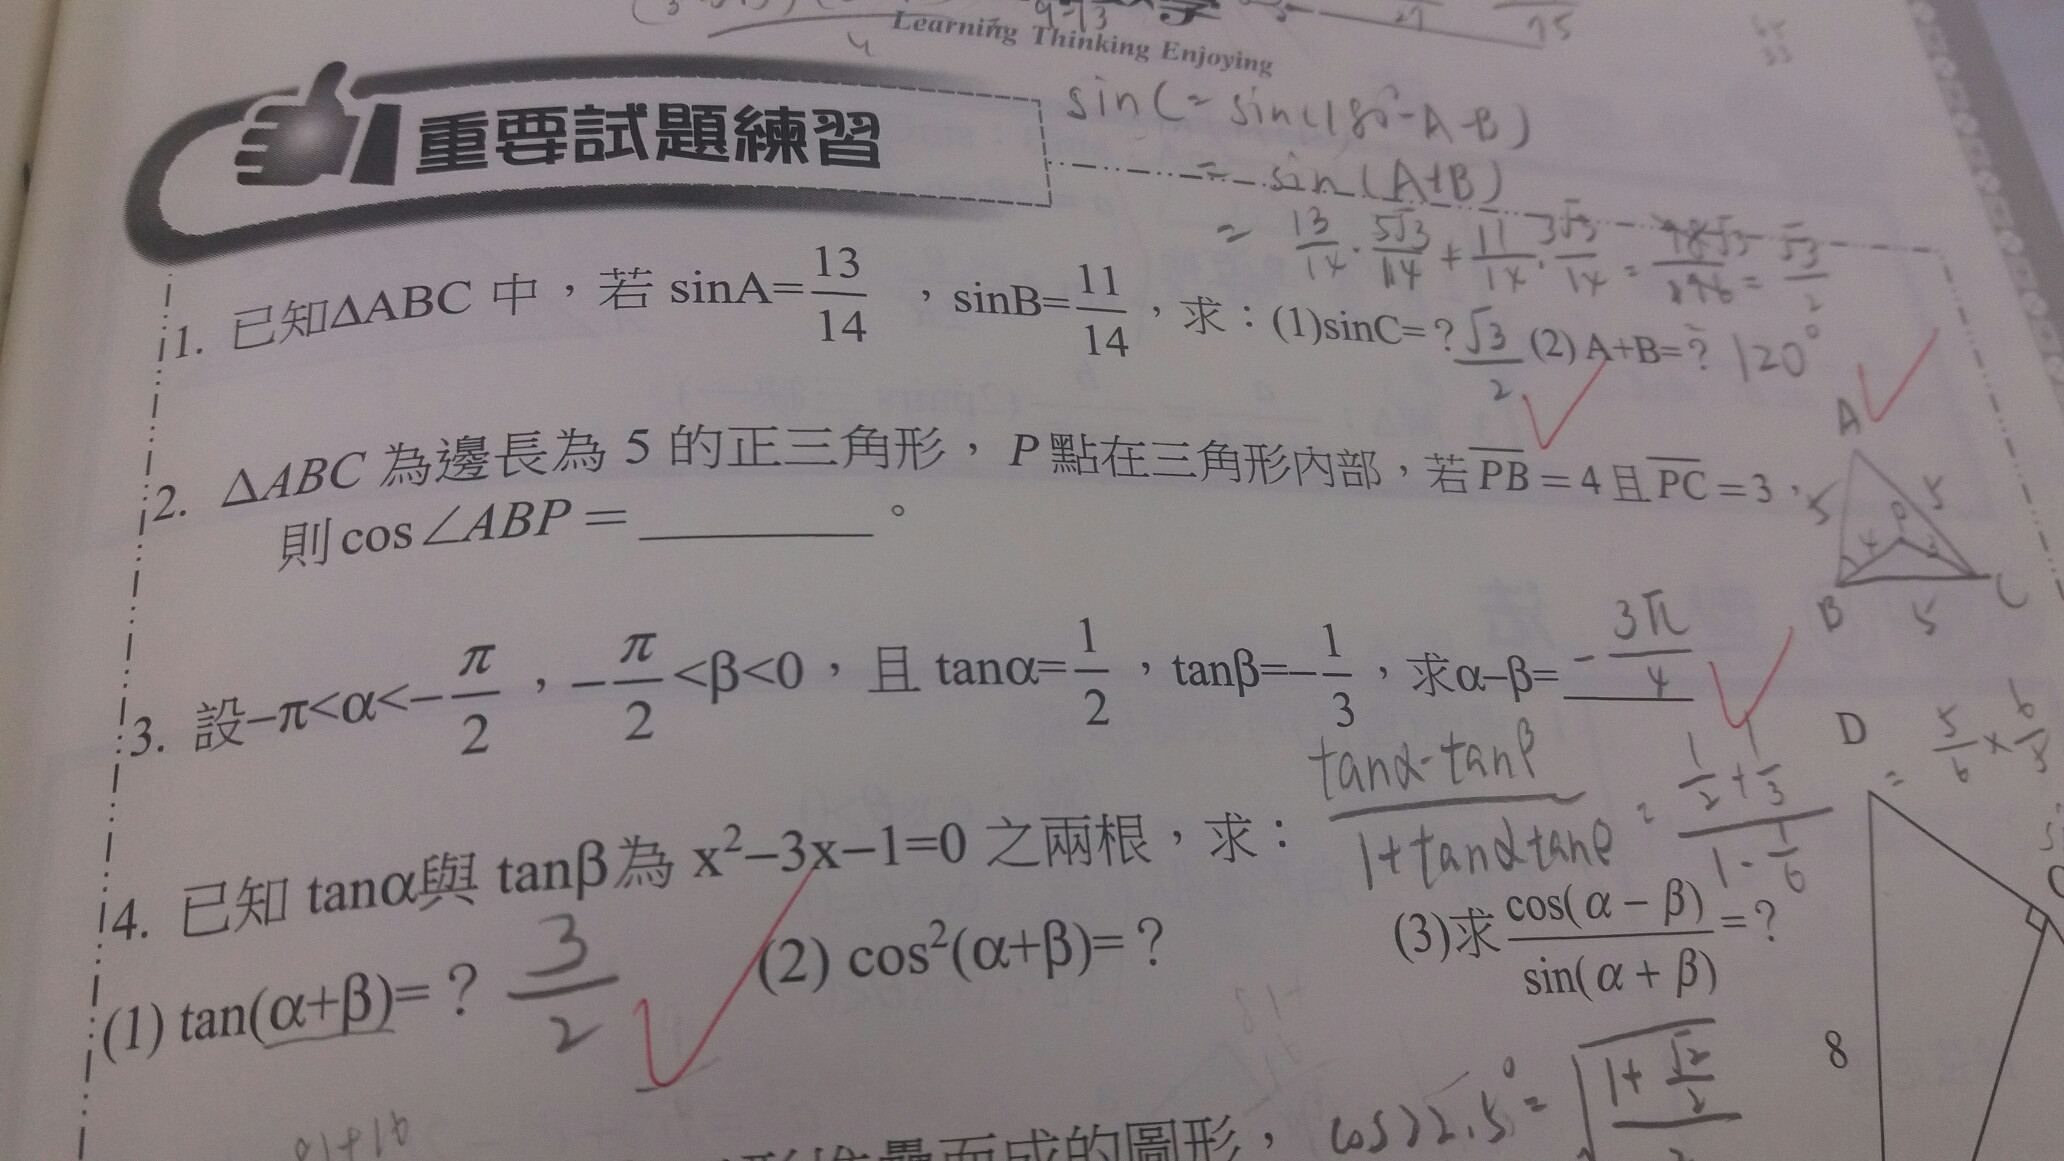 Learning Thinking Enjoying
重要試題練習
sinC= sin(180°-A-B)
= sin(A+B)
= 13/14 · 5√3/14 + 11/14 · 3√3/14 = 98√3/196 = √3/2
1. 已知ΔABC 中，若 sinA=13/14 ，sinB=11/14，求：(1)sinC=？√3/2 (2) A+B=？120°
2. ΔABC 為邊長為 5 的正三角形，P點在三角形內部，若PB=4且PC=3，
則cos∠ABP=＿＿＿＿。
A
5 5
P
4 3
B 5 C
3. 設−π<α<−π/2，−π/2<β<0，且 tanα=1/2，tanβ=−1/3，求α−β= -3π/4
tanα-tanβ / 1+tanαtanβ = 1/2+1/3 / 1-1/6
= 5/6 × 6/5
D
4. 已知 tanα與 tanβ為 x²−3x−1=0 之兩根，求：
(1) tan(α+β)=？ 3/2 (2) cos²(α+β)=？ (3)求 cos(α − β)/sin(α + β) =？
8
疊而成的圖形， cos22.5°= √1+√2/2